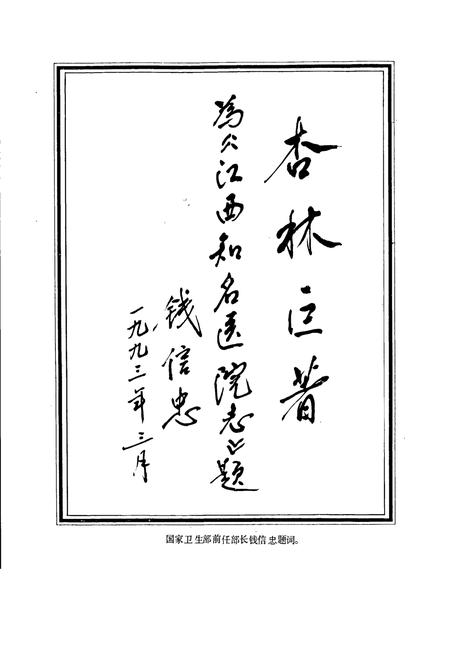 杏林巨著
为《江西知名医院志》题
钱信忠
一九九三年三月
国家卫生部前任部长钱信忠题词。